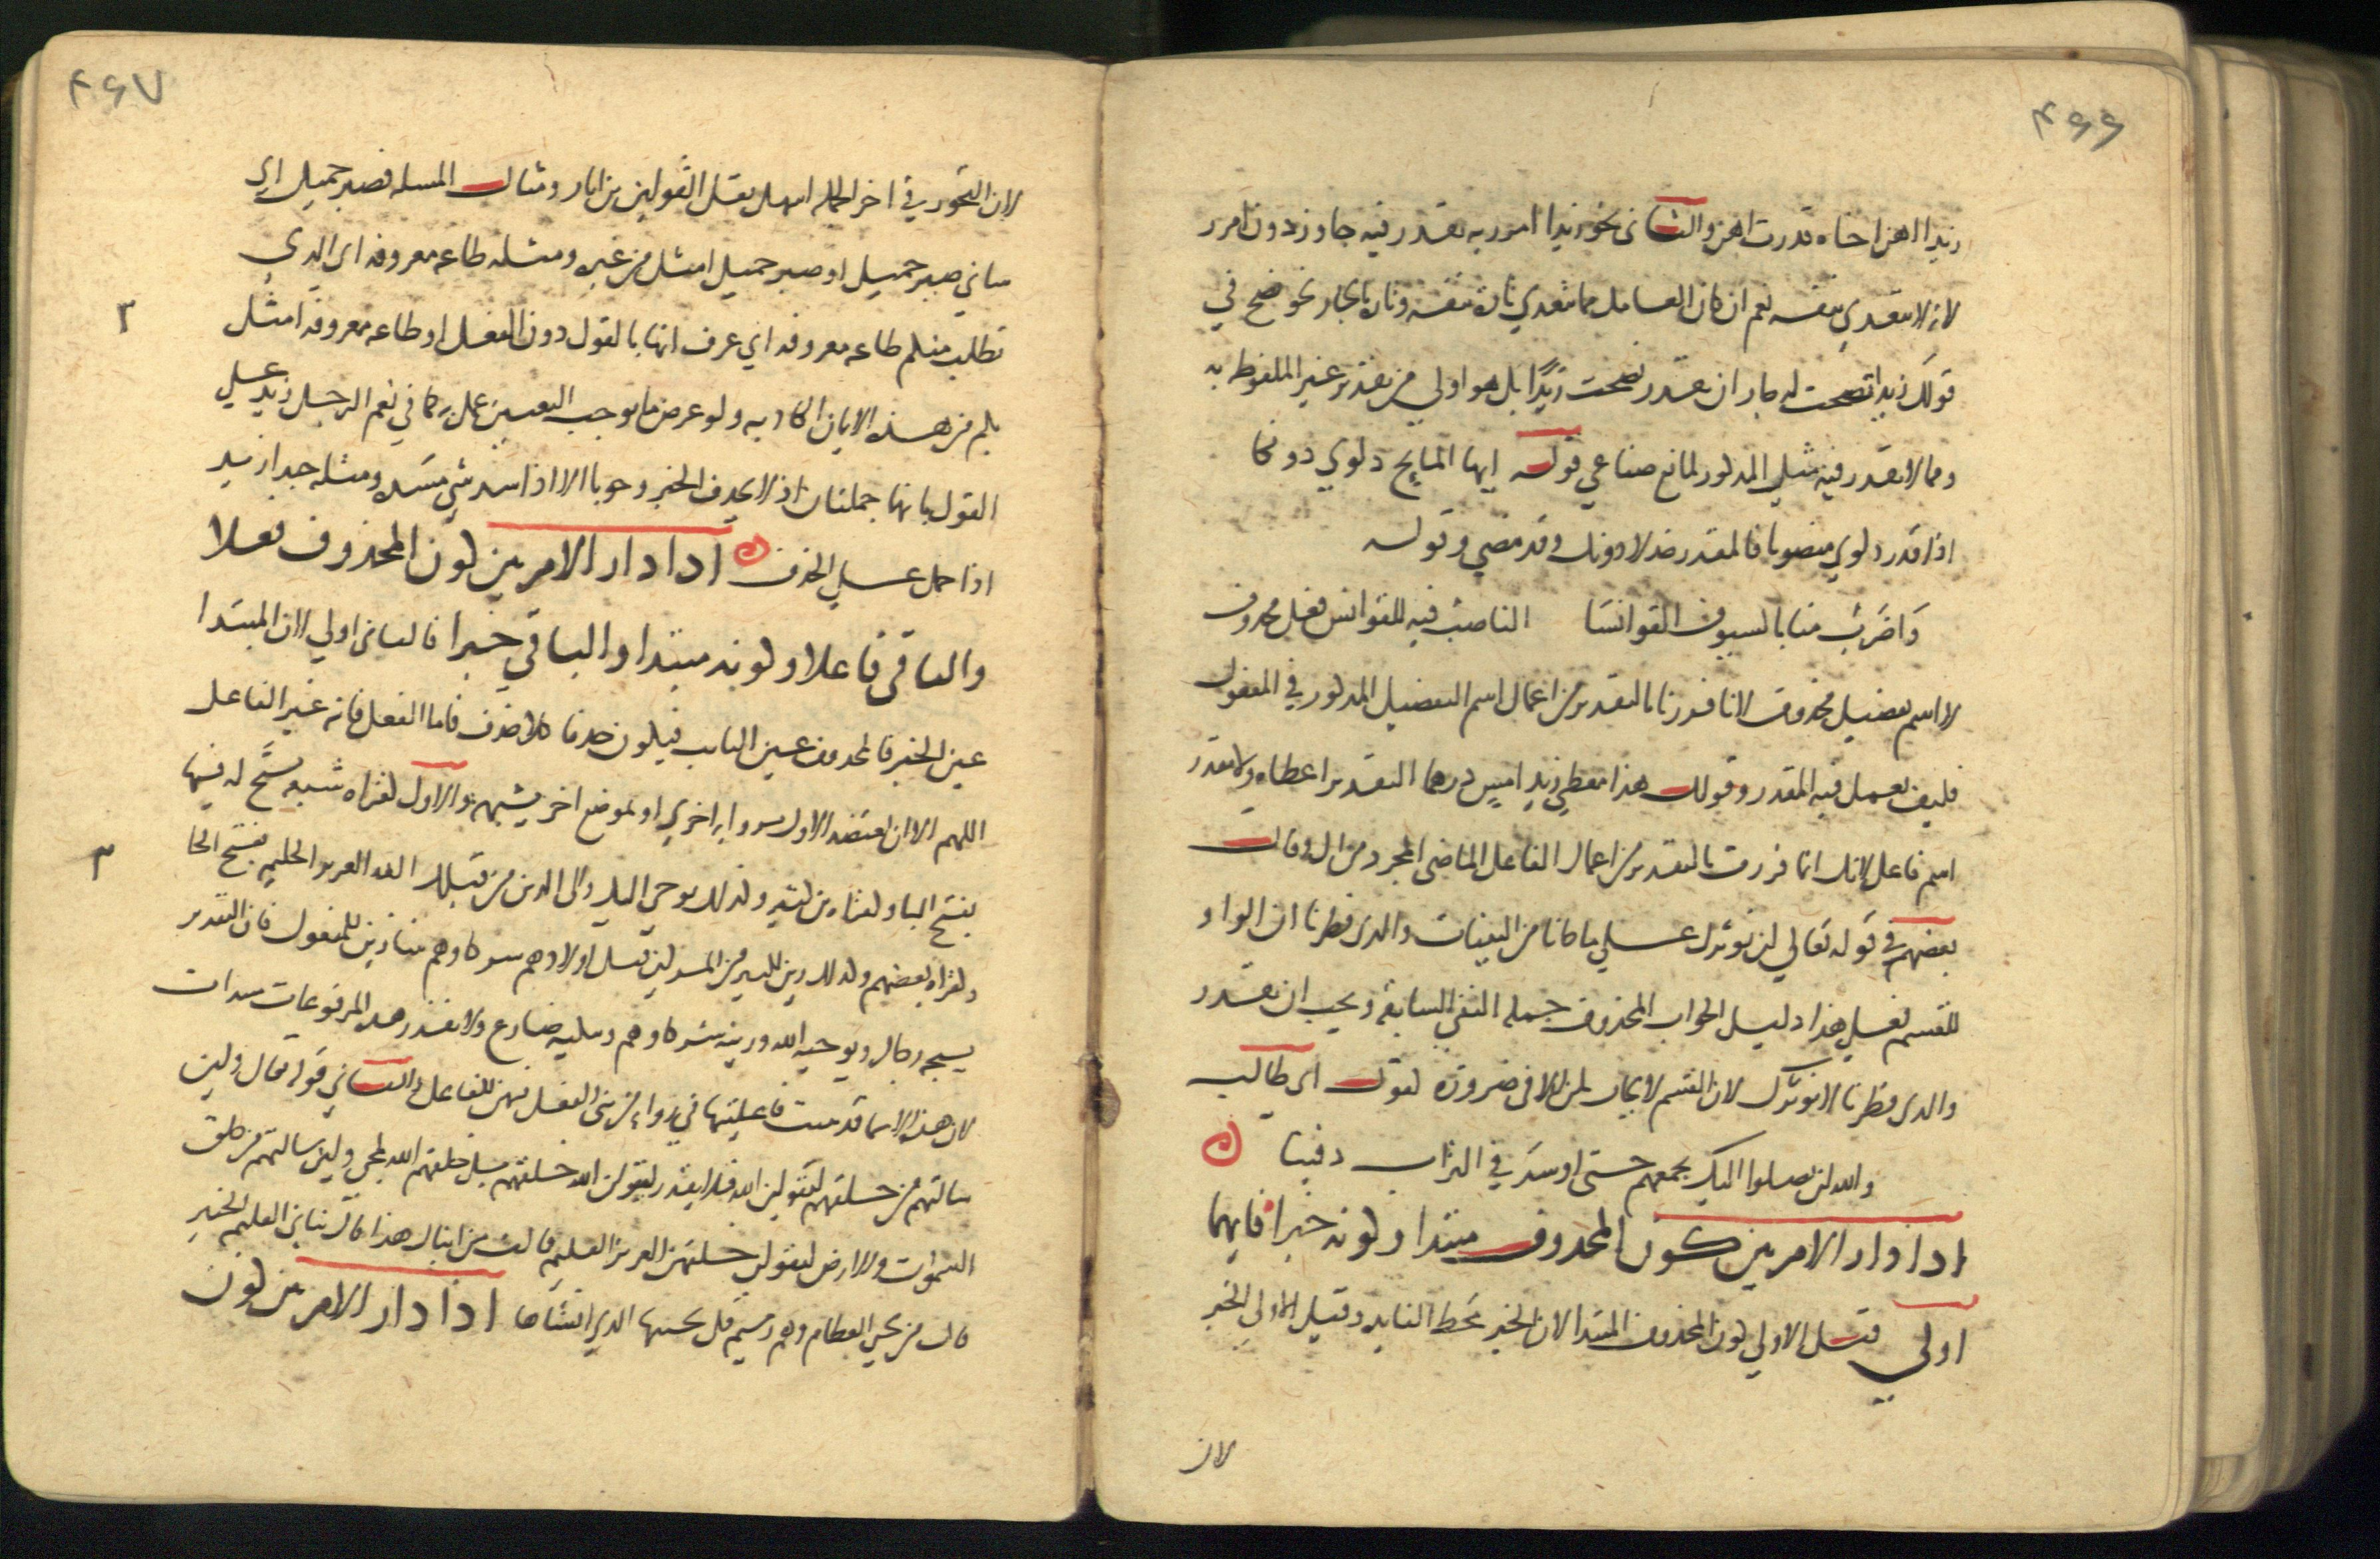 ۴۶۶
زيدا اهن اخاه قدرت اهن والثاني نحو زيدا امرر به تقدر فيه جاوز دون امرر
لانه لا يتعدي بنفسه نعم ان كان العامل مما يتعدي تارة بنفسه وتارة بالجار نحو نصح في
قولك زيدا نصحت له جاز ان يقدر نصحت زيدًا بل هو اولي من تقدير غير الملفوظ به
ومما لا يقدر فيه مثل المذكور لمانع صناعي قوله ايها المايح دلوي دونكا
اذا قدر دلوي منصوبا فالمقدر خذ لا دونك وقد مضي وقوله
وَاضرَبُ منا بالسيوف القوانسَا الناصب فيه للقوانس فعل محذوف
لا اسم تفضيل محذوف لانا فررنا بالتقدير من اعمال اسم التفضيل المذكور في المفعول
فكيف يعمل فيه المقدر وقولك هذا معطي زيد امسِ درهما التقدير اعطاه ولا يقدر
اسم فاعل لانك انما فررت بالتقدير من اعمال الفاعل الماضي المجرد من ال وقال
بعضهم في قوله تعالي لن نوثرك علي ما جانا من البينات والذي فطرنا ان الواو
للقسم فعلي هذا دليل الجواب المحذوف جملة النفي السابقة ويجب ان يقدر
والذي فطرنا لا نوثرك لان القسم لا يجاب بلن الا في ضرورة كقول ابي طالب
والله لن يصلوا اليك بجمعهم حتى اوسدَ في التراب دفينا
اذا دار الامر بين كون المحذوف مبتدا وكونه خبرا فايهما
اولي قيل الاولي كون المحذوف المبتدا لان الخبر محط الفايده وقيل الاولي الخبر
لان
۴۶۷
لان التجوز في اخر الجمله اسهل نقل القولين بن اياز ومثال المسله فصبر جميل اي
شاني صبر جميل او صبر جميل امثل من غيره ومثله طاعه معروفه اي الذي
٢
يطلب منكم طاعه معروفه اي عرف انها بالقول دون الفعل او طاعه معروفه امثل
بكم من هذه الايمان الكاذبه ولو عرض ما يوجب التعيين عمل به كما في نعم الرجل زيد علي
القول بانهما جملتان اذ لا يحذف الخبر وجوبا الا اذا سد شي مسَده ومثله حبذا زيد
اذا حمل علي الحذف اذا دار الامر بين كون المحذوف فعلا
والباقي فاعلا وكونه مبتدا والباقي خبرا فالثاني اولي لان المبتدا
عين الخبر فالمحذوف عين الثابت فيكون حذفا كلا حذف فاما الفعل فانه غير الفاعل
اللهم الا ان يعتضد الاول برواية اخري او بموضع اخر يشبهه والاول كقراة شعبه يسبَّح له فيها
٣
بفتح البا وكقراة بن كثير وكذلك يوحي اليك والي الذين من قبلك الله العزيز الحكيم بفتح الحا
وكقراة بعضهم وكذلك زين لكثير من المشركين قتل اولادهم شركاوهم ببنا زين للمفعول فان التقدير
يسبحه رجال ويوحيه الله وزينه شركاوهم ولا يقدر هذه المرفوعات مبتدات
لان هذه الاسما قد ثبتت فاعليتها في رواية من بنى الفعل فيهن للفاعل والثاني قوله تعالي ولين
سالتهم من خلقهم ليقولن الله فلا يقدر ليقولن الله خلقهم بل خلقهم الله لمجي ولين سالتهم من خلق
السموات والارض ليقولن خلقهن العزيز العليم قالت من انباك هذا قال نباني العليم الخبير
قال من يحي العظام وهي رميم قل يحييها الذي انشاها اذا دار الامر بين كون